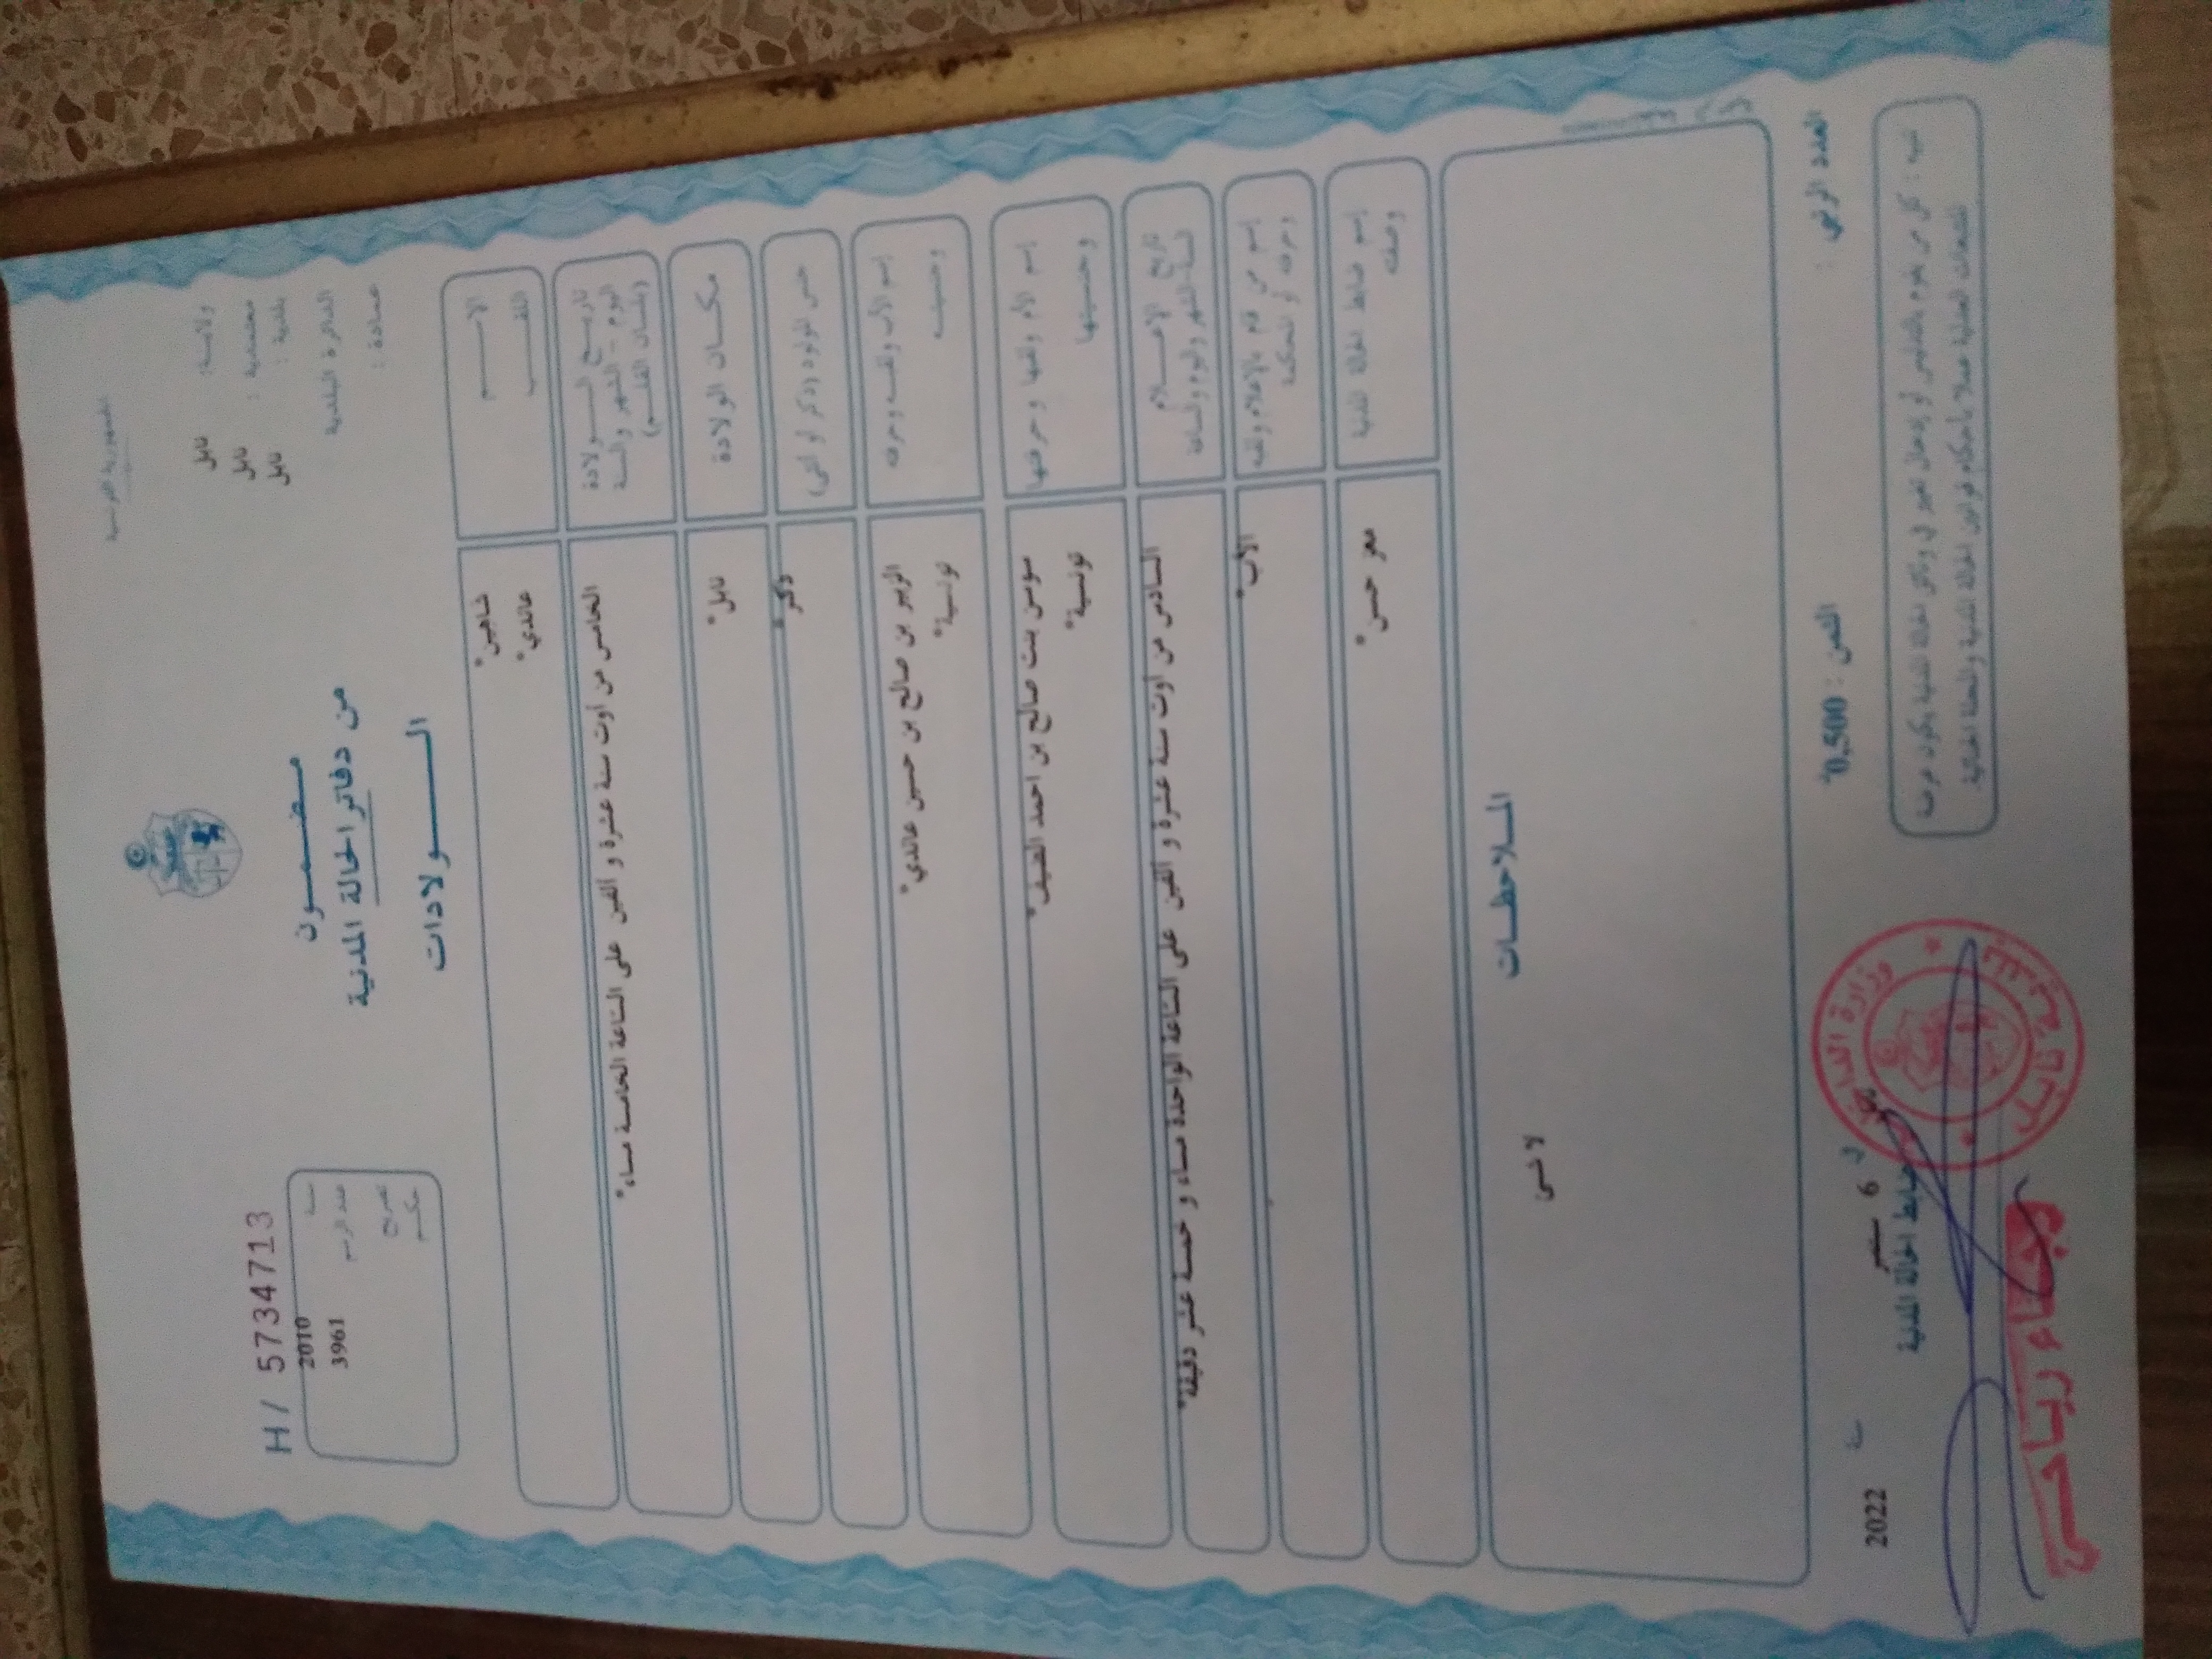 الجمهورية التونسية
ولاية: نابل
معتمدية : نابل
بلدية : نابل
الدائرة البلدية
عمادة :
مضمون
من دفاتر الحالة المدنية
الولادات
H / 5734713
سنة 2010
عدد الرسم 3961
تصريح
حكم
الاسم شاهين*
اللقب عائدي*
تاريخ الولادة
اليوم - الشهر والسنة
(بلسان القلم)
الخامس من اوت سنة عشرة و ألفين على الساعة الخامسة مساء*
مكان الولادة نابل*
جنس المولود (ذكر أو أنثى) ذكر*
إسم الأب ولقبه وحرفته الزبير بن صالح بن حسين عائدي*
وجنسيته تونسية*
إسم الأم ولقبها وحرفتها سوسن بنت صالح بن احمد الضيف*
وجنسيتها تونسية*
تاريخ الإعلام
السنة-الشهر واليوم والساعة
السادس من اوت سنة عشرة و ألفين على الساعة الواحدة مساء و خمسة عشر دقيقة*
إسم من قام بالإعلام ولقبه الأب*
وحرفته أو المحكمة
إسم ضابط الحالة المدنية معز حسن*
وصفته
الملاحظات
لا شئ
العدد الرتبي :
الثمن : 0,500د
في 6 سبتمبر سنة 2022
ضابط الحالة المدنية
تنبيه : كل من يقوم بالتدليس أو إدخال تغيير في وثائق الحالة المدنية يكون عرضة
للتبعات العدلية عملا بأحكام قوانين الحالة المدنية والمجلة الجنائية
وزارة الداخلية
رجاء رياحي